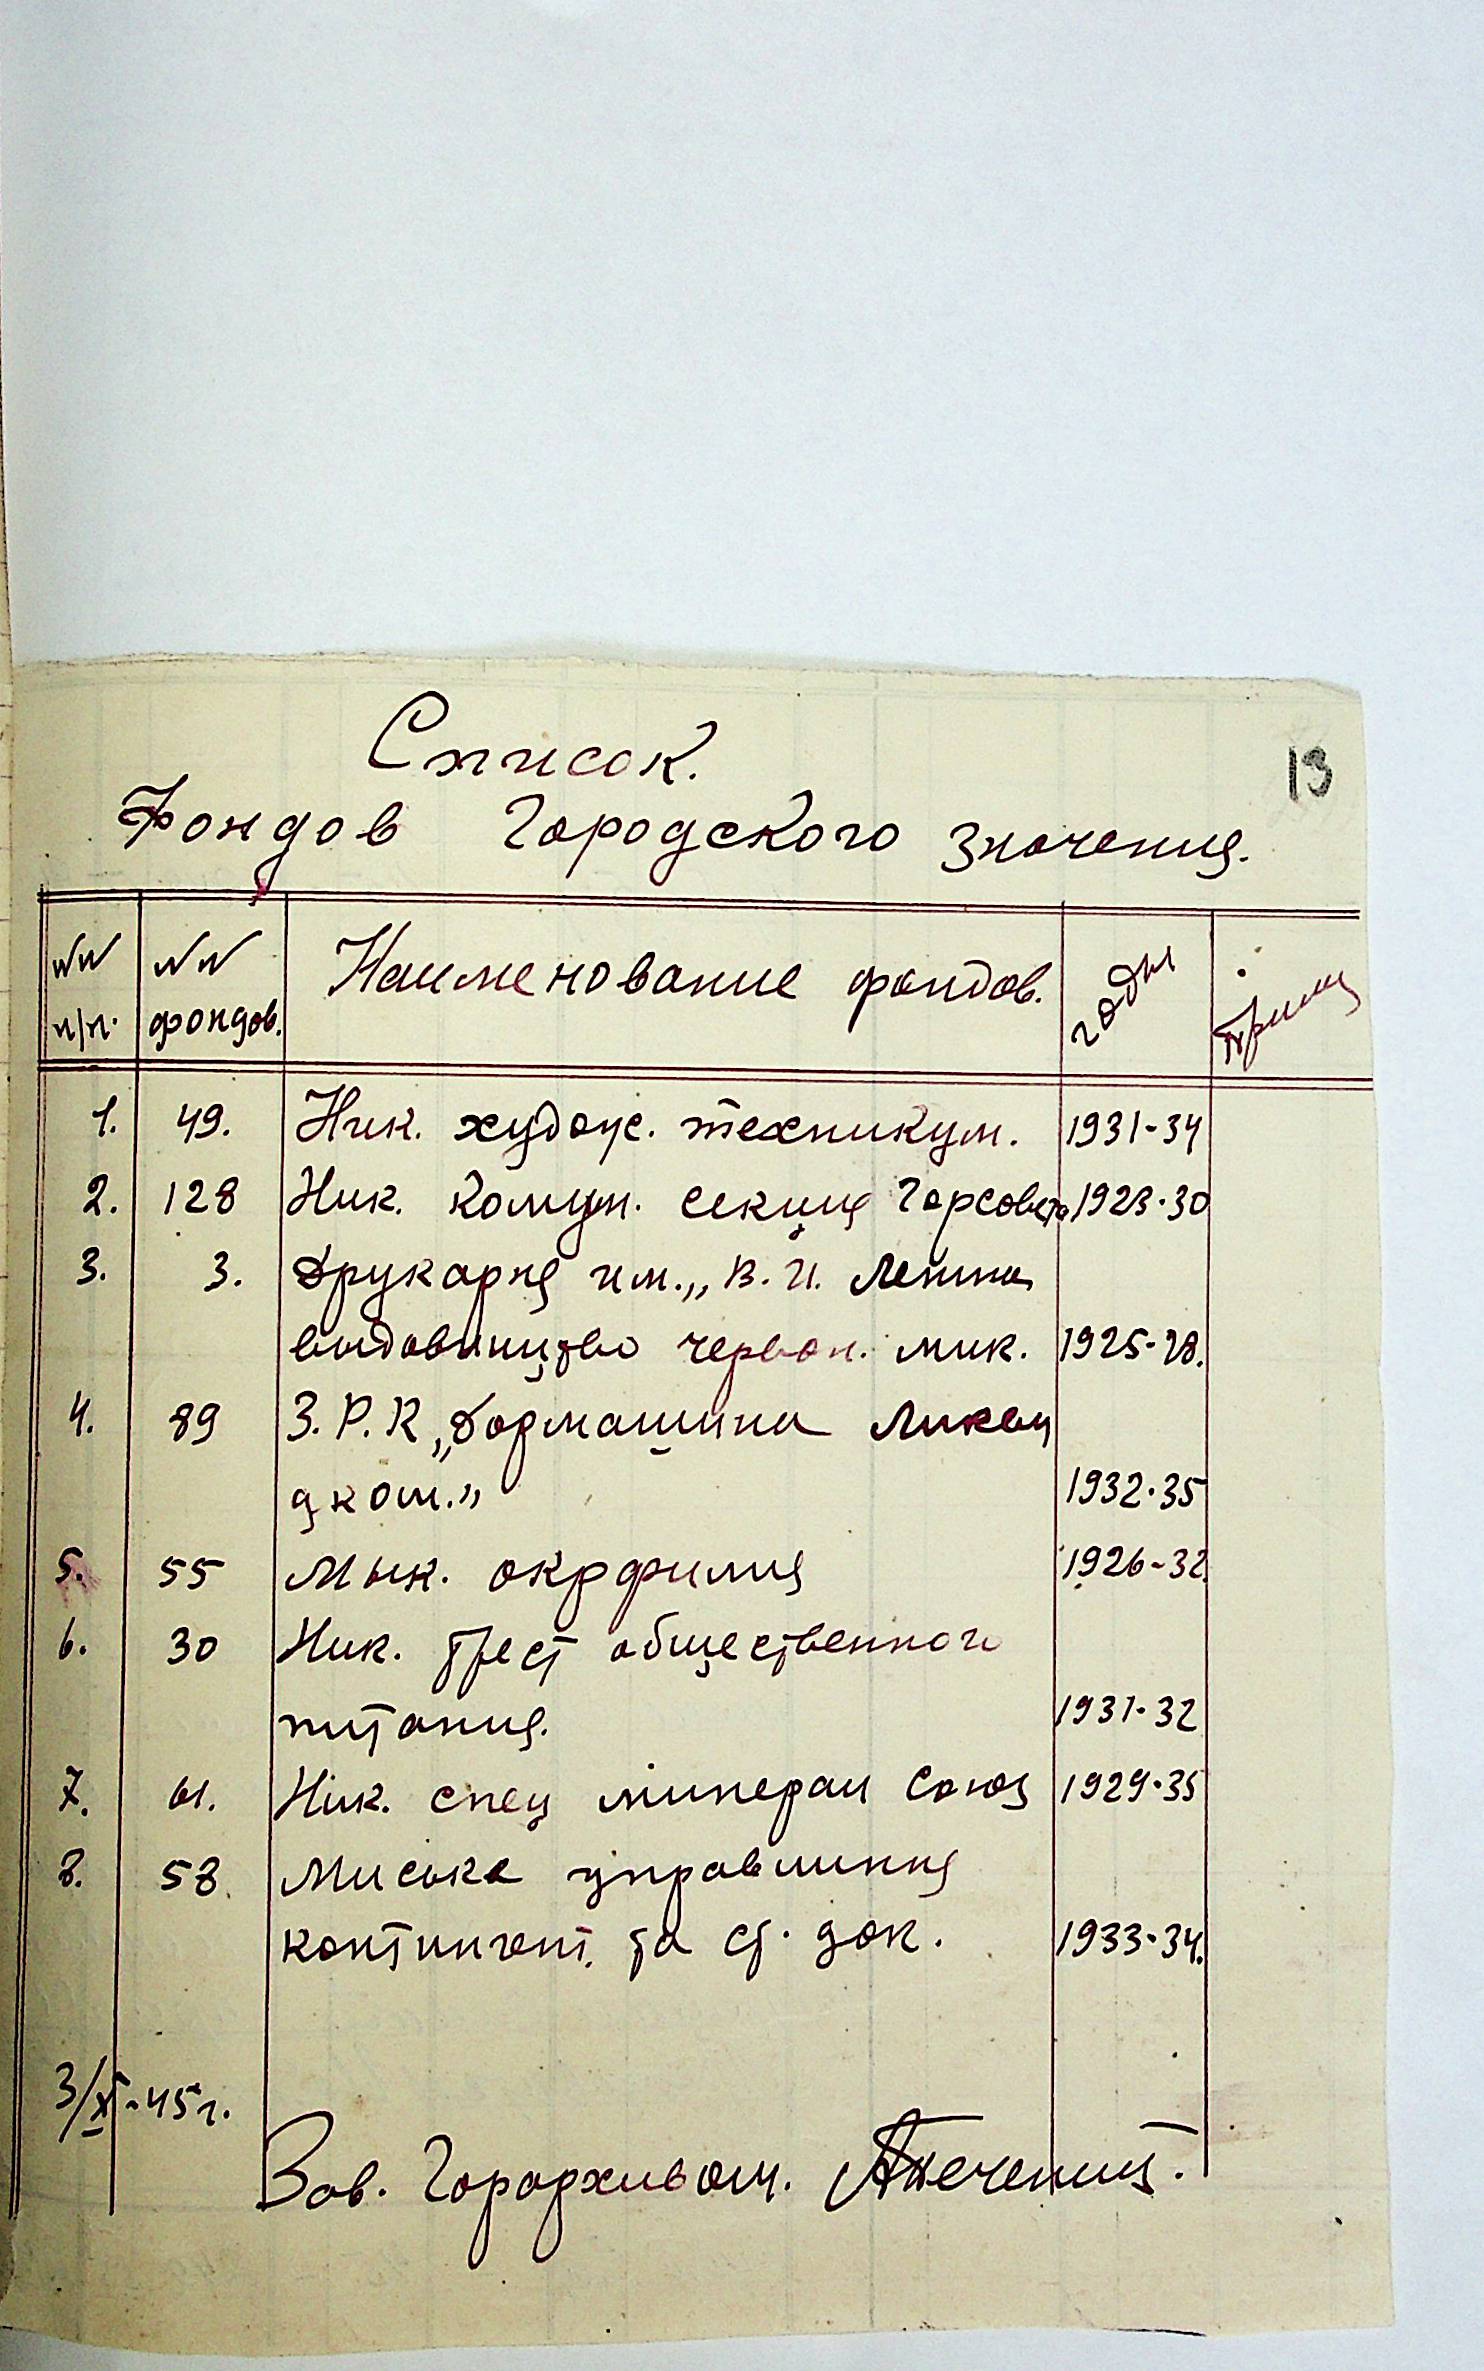 Список.
13
Фондов Городского значения.
№№ п/п. №№ фондов. Наименование фондов. годы Примеч
1. 49. Ник. худож. техникум. 1931-34
2. 128 Ник. комун. секция Горсовета 1923-30
3. 3. Друкарня им. „В. И. Ленина
видавництво червон. мик. 1925-28.
4. 89 З.Р.К „Дормашина Ликви
дком.” 1932-35
5. 55 Мык. окрфилия 1926-32.
6. 30 Ник. трест общественного
питания. 1931-32
7. 61. Ник. спец минерал союз 1929-35
8. 58. Миське управлиння
контингент. та ст. док. 1933-34.
3/X-45 г.
Зав. Горархивом.